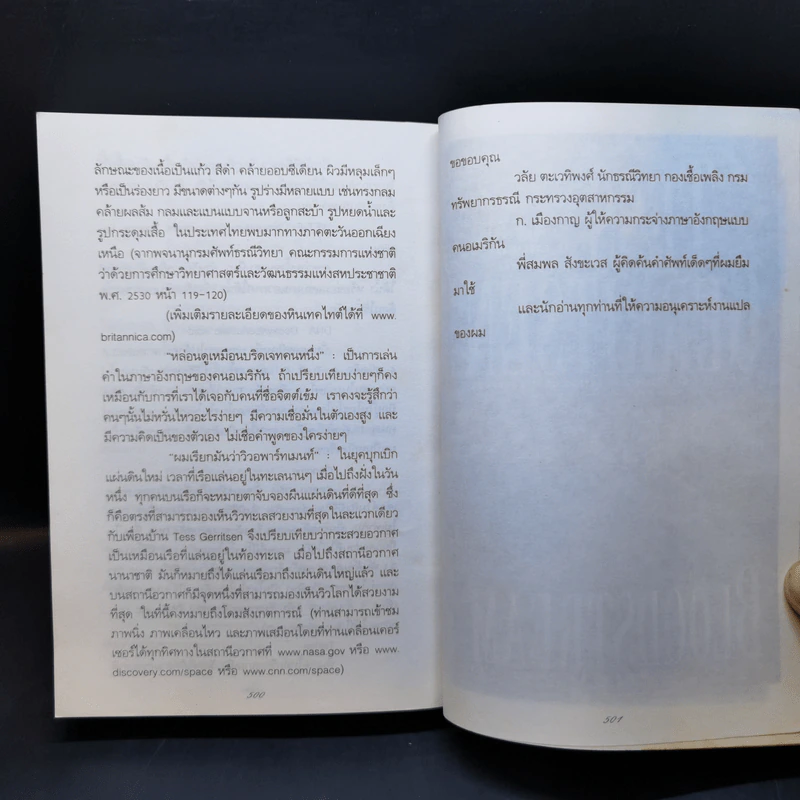 ลักษณะของเนื้อเป็นแก้ว สีดำ คล้ายออบซีเดียน ผิวมีหลุมเล็กๆ
หรือเป็นร่องยาว มีขนาดต่างๆกัน รูปร่างมีหลายแบบ เช่นทรงกลม
คล้ายผลส้ม กลมและแบนแบบจานหรือลูกสะบ้า รูปหยดน้ำและ
รูปกระดุมเสื้อ ในประเทศไทยพบมากทางภาคตะวันออกเฉียง
เหนือ (จากพจนานุกรมศัพท์ธรณีวิทยา คณะกรรมการแห่งชาติ
ว่าด้วยการศึกษาวิทยาศาสตร์และวัฒนธรรมแห่งสหประชาชาติ
พ.ศ. 2530 หน้า 119-120)
(เพิ่มเติมรายละเอียดของหินเทคไทต์ได้ที่ www.
britannica.com)
"หล่อนดูเหมือนบริดเจทคนหนึ่ง" : เป็นการเล่น
คำในภาษาอังกฤษของคนอเมริกัน ถ้าเปรียบเทียบง่ายๆก็คง
เหมือนกับการที่เราได้เจอกับคนที่ชื่อจิตต์เข้ม เราคงจะรู้สึกว่า
คนๆนั้นไม่หวั่นไหวอะไรง่ายๆ มีความเชื่อมั่นในตัวเองสูง และ
มีความคิดเป็นของตัวเอง ไม่เชื่อคำพูดของใครง่ายๆ
"ผมเรียกมันว่าวิวอพาร์ทเมนท์" : ในยุคบุกเบิก
แผ่นดินใหม่ เวลาที่เรือแล่นอยู่ในทะเลนานๆ เมื่อไปถึงฝั่งในวัน
หนึ่ง ทุกคนบนเรือก็จะหมายตาจับจองผืนแผ่นดินที่ดีที่สุด ซึ่ง
ก็คือตรงที่สามารถมองเห็นวิวทะเลสวยงามที่สุดในละแวกเดียว
กับเพื่อนบ้าน Tess Gerritsen จึงเปรียบเทียบว่ากระสวยอวกาศ
เป็นเหมือนเรือที่แล่นอยู่ในท้องทะเล เมื่อไปถึงสถานีอวกาศ
นานาชาติ มันก็หมายถึงได้แล่นเรือมาถึงแผ่นดินใหญ่แล้ว และ
บนสถานีอวกาศก็มีจุดหนึ่งที่สามารถมองเห็นวิวโลกได้สวยงาม
ที่สุด ในที่นี้คงหมายถึงโดมสังเกตการณ์ (ท่านสามารถเข้าชม
ภาพนิ่ง ภาพเคลื่อนไหว และภาพเสมือนโดยที่ท่านเคลื่อนเคอร์
เซอร์ได้ทุกทิศทางในสถานีอวกาศที่ www.nasa.gov หรือ www.
discovery.com/space หรือ www.cnn.com/space)
500
ขอขอบคุณ
วลัย ตะเวทิพงศ์ นักธรณีวิทยา กองเชื้อเพลิง กรม
ทรัพยากรธรณี กระทรวงอุตสาหกรรม
ก. เมืองกาญ ผู้ให้ความกระจ่างภาษาอังกฤษแบบ
คนอเมริกัน
พี่สมพล สังขะเวส ผู้คิดค้นคำศัพท์เด็ดๆที่ผมยืม
มาใช้
และนักอ่านทุกท่านที่ให้ความอนุเคราะห์งานแปล
ของผม
501